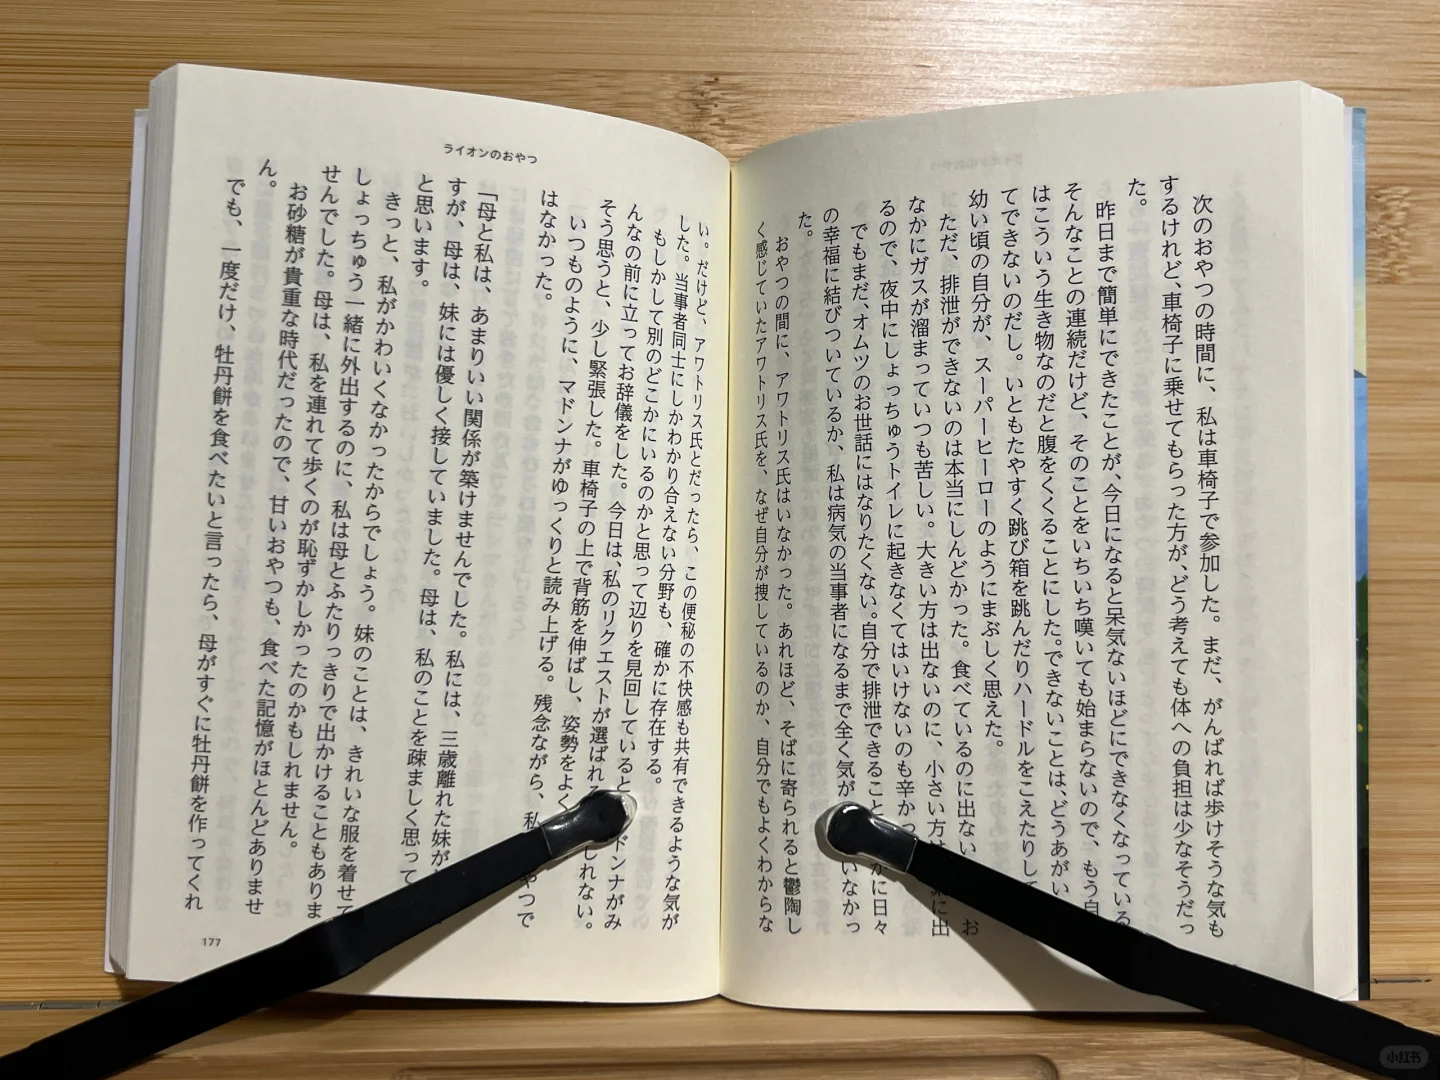 次のおやつの時間に、私は車椅子で参加した。まだ、がんばれば歩けそうな気も
するけれど、車椅子に乗せてもらった方が、どう考えても体への負担は少なそうだっ
た。
昨日まで簡単にできたことが、今日になると呆気ないほどにできなくなっている。
そんなことの連続だけど、そのことをいちいち嘆いても始まらないので、もう自
はこういう生き物なのだと腹をくくることにした。できないことは、どうあがい
てできないのだし。いともたやすく跳び箱を跳んだりハードルをこえたりして
幼い頃の自分が、スーパーヒーローのようにまぶしく思えた。
ただ、排泄ができないのは本当にしんどかった。食べているのに出ない お
なかにガスが溜まっていつも苦しい。大きい方は出ないのに、小さい方は に出
るので、夜中にしょっちゅうトイレに起きなくてはいけないのも辛かっ
でもまだ、オムツのお世話にはなりたくない。自分で排泄できること かに日々
の幸福に結びついているか、私は病気の当事者になるまで全く気が いなかっ
た。
おやつの間に、アワトリス氏はいなかった。あれほど、そばに寄られると鬱陶し
く感じていたアワトリス氏を、なぜ自分が捜しているのか、自分でもよくわからな
ライオンのおやつ
い。だけど、アワトリス氏とだったら、この便秘の不快感も共有できるような気が
した。当事者同士にしかわかり合えない分野も、確かに存在する。
もしかして別のどこかにいるのかと思って辺りを見回していると ドンナがみ
んなの前に立ってお辞儀をした。今日は、私のリクエストが選ばれ しれない。
そう思うと、少し緊張した。車椅子の上で背筋を伸ばし、姿勢をよく
いつものように、マドンナがゆっくりと読み上げる。残念ながら、私 やつで
はなかった。
「母と私は、あまりいい関係が築けませんでした。私には、三歳離れた妹が
すが、母は、妹には優しく接していました。母は、私のことを疎ましく思って
と思います。
きっと、私がかわいくなかったからでしょう。妹のことは、きれいな服を着せて
しょっちゅう一緒に外出するのに、私は母とふたりっきりで出かけることもありま
せんでした。母は、私を連れて歩くのが恥ずかしかったのかもしれません。
お砂糖が貴重な時代だったので、甘いおやつも、食べた記憶がほとんどありませ
ん。
でも、一度だけ、牡丹餅を食べたいと言ったら、母がすぐに牡丹餅を作ってくれ
177
小红书